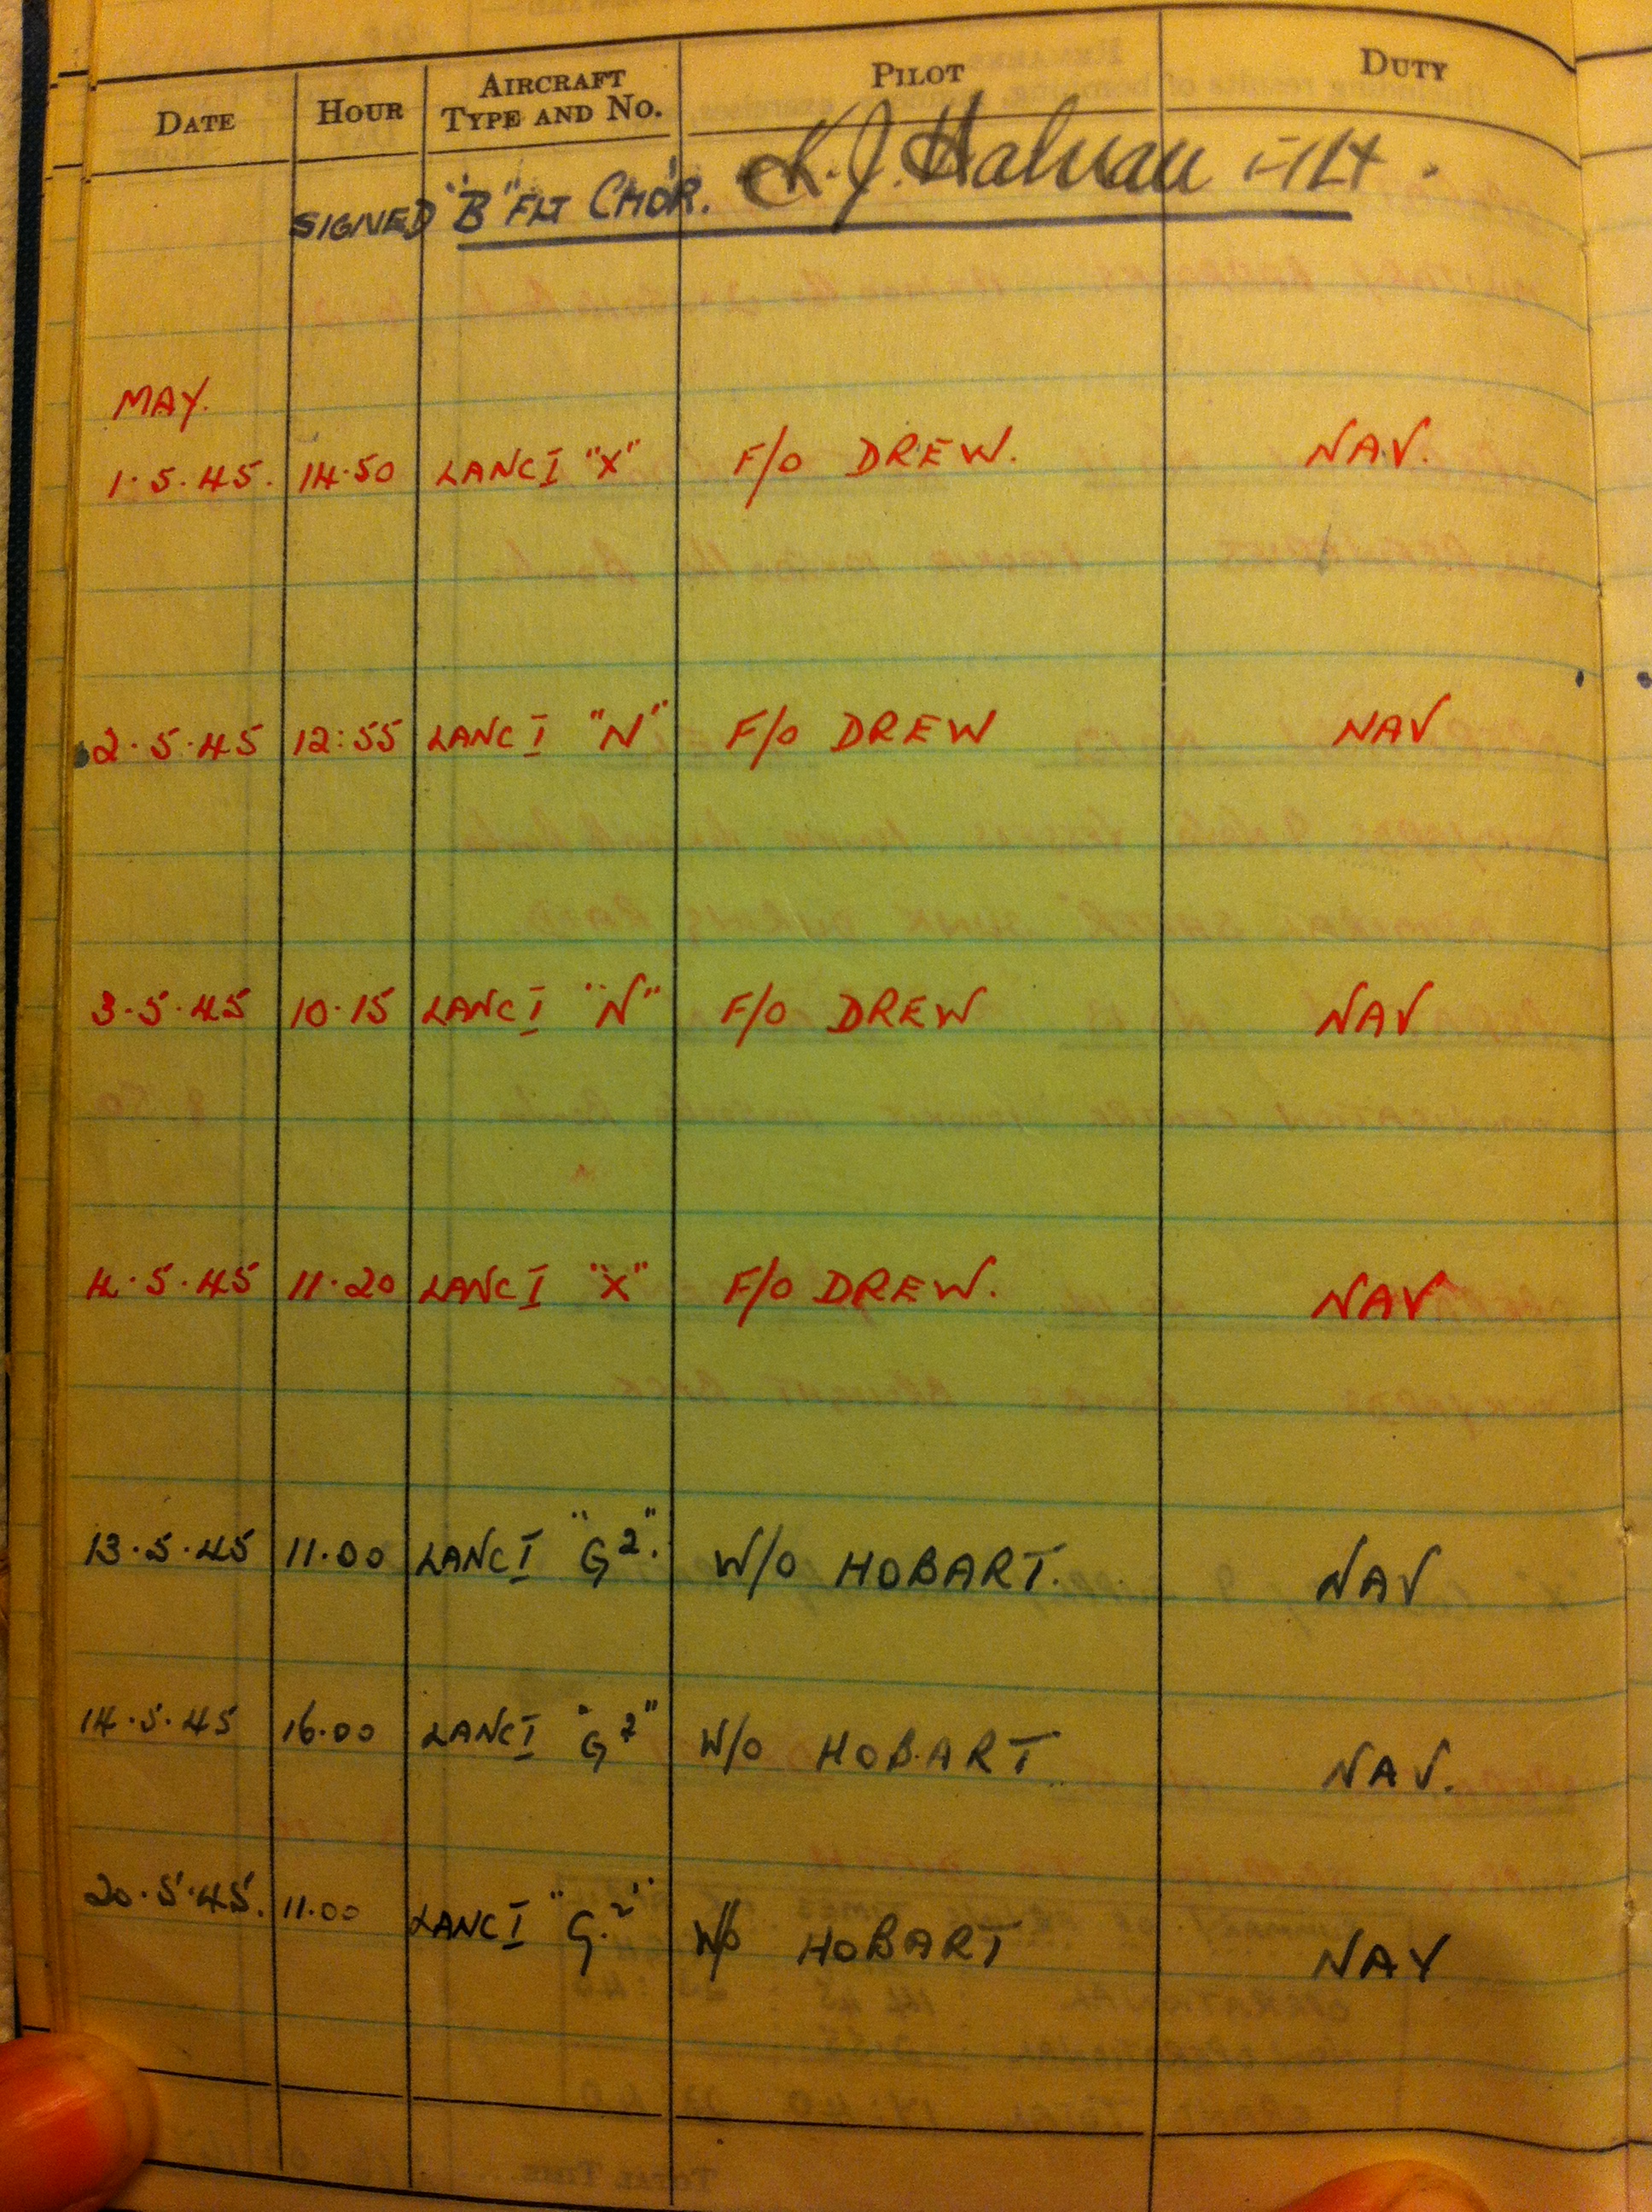 DATE HOUR AIRCRAFT TYPE AND NO. PILOT DUTY
SIGNED "B" FLT CMDR. K. J. F/Lt.
MAY.
1.5.45. 14.50 LANC I "X" F/O DREW. NAV.
2.5.45 12:55 LANC I "N" F/O DREW NAV
3.5.45 10.15 LANC I "N" F/O DREW NAV
4.5.45 11.20 LANC I "X" F/O DREW. NAV
13.5.45 11.00 LANC I "G2". W/O HOBART. NAV
14.5.45 16.00 LANC I "G2" W/O HOBART NAV.
20.5.45. 11.00 LANC I "G.2" W/O HOBART NAV